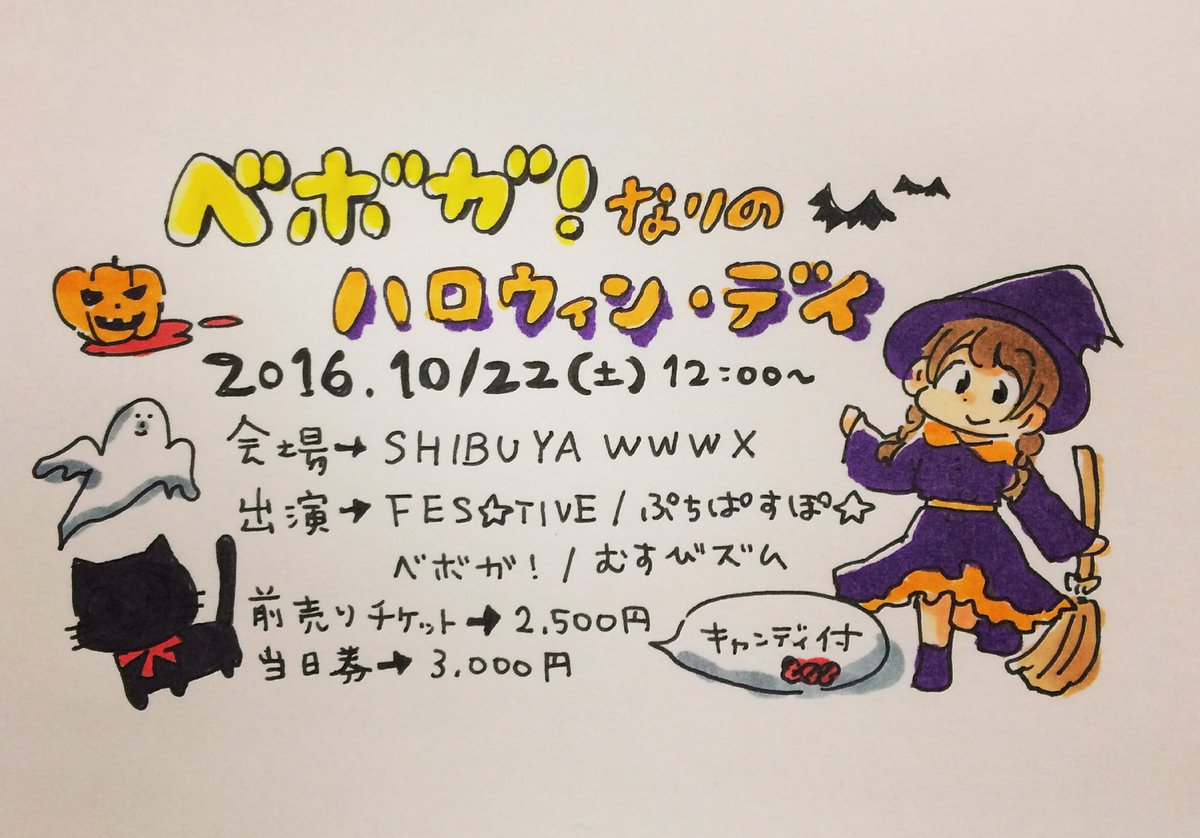 ベボガ！なりの
ハロウィン・デイ
2016.10/22(土) 12:00～
会場→SHIBUYA WWW X
出演→FES☆TIVE/ぷちぱすぽ☆
ベボガ！/むすびズム
前売りチケット→2,500円
当日券→3,000円
キャンディ付